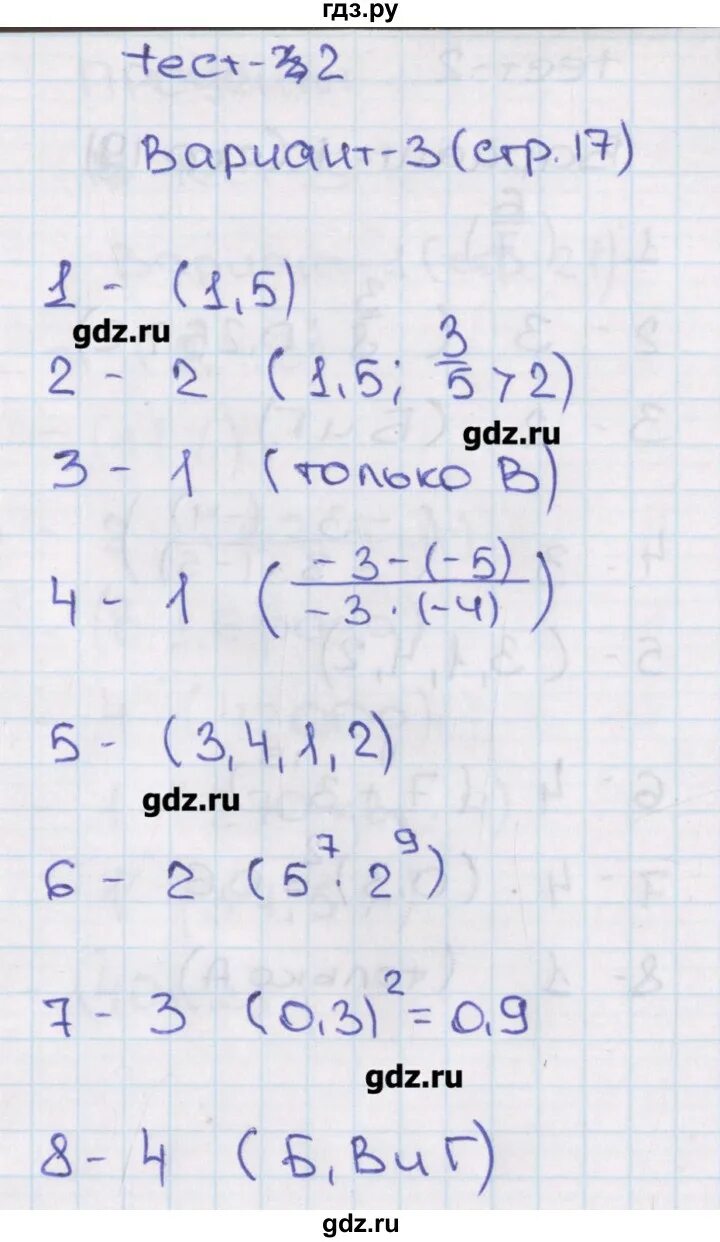 гдз.ру
тест-2
Вариант-3 (стр.17)
1 - (1,5)
gdz.ru
2 - 2 (1,5; 3/5 > 2)
gdz.ru
3 - 1 (только В)
4 - 1 (-3-(-5)/-3·(-4))
5 - (3,4,1,2)
gdz.ru
6 - 2 (5⁷·2⁹)
7 - 3 (0,3)² = 0,9
gdz.ru
8 - 4 (Б, В и Г)
gdz.ru